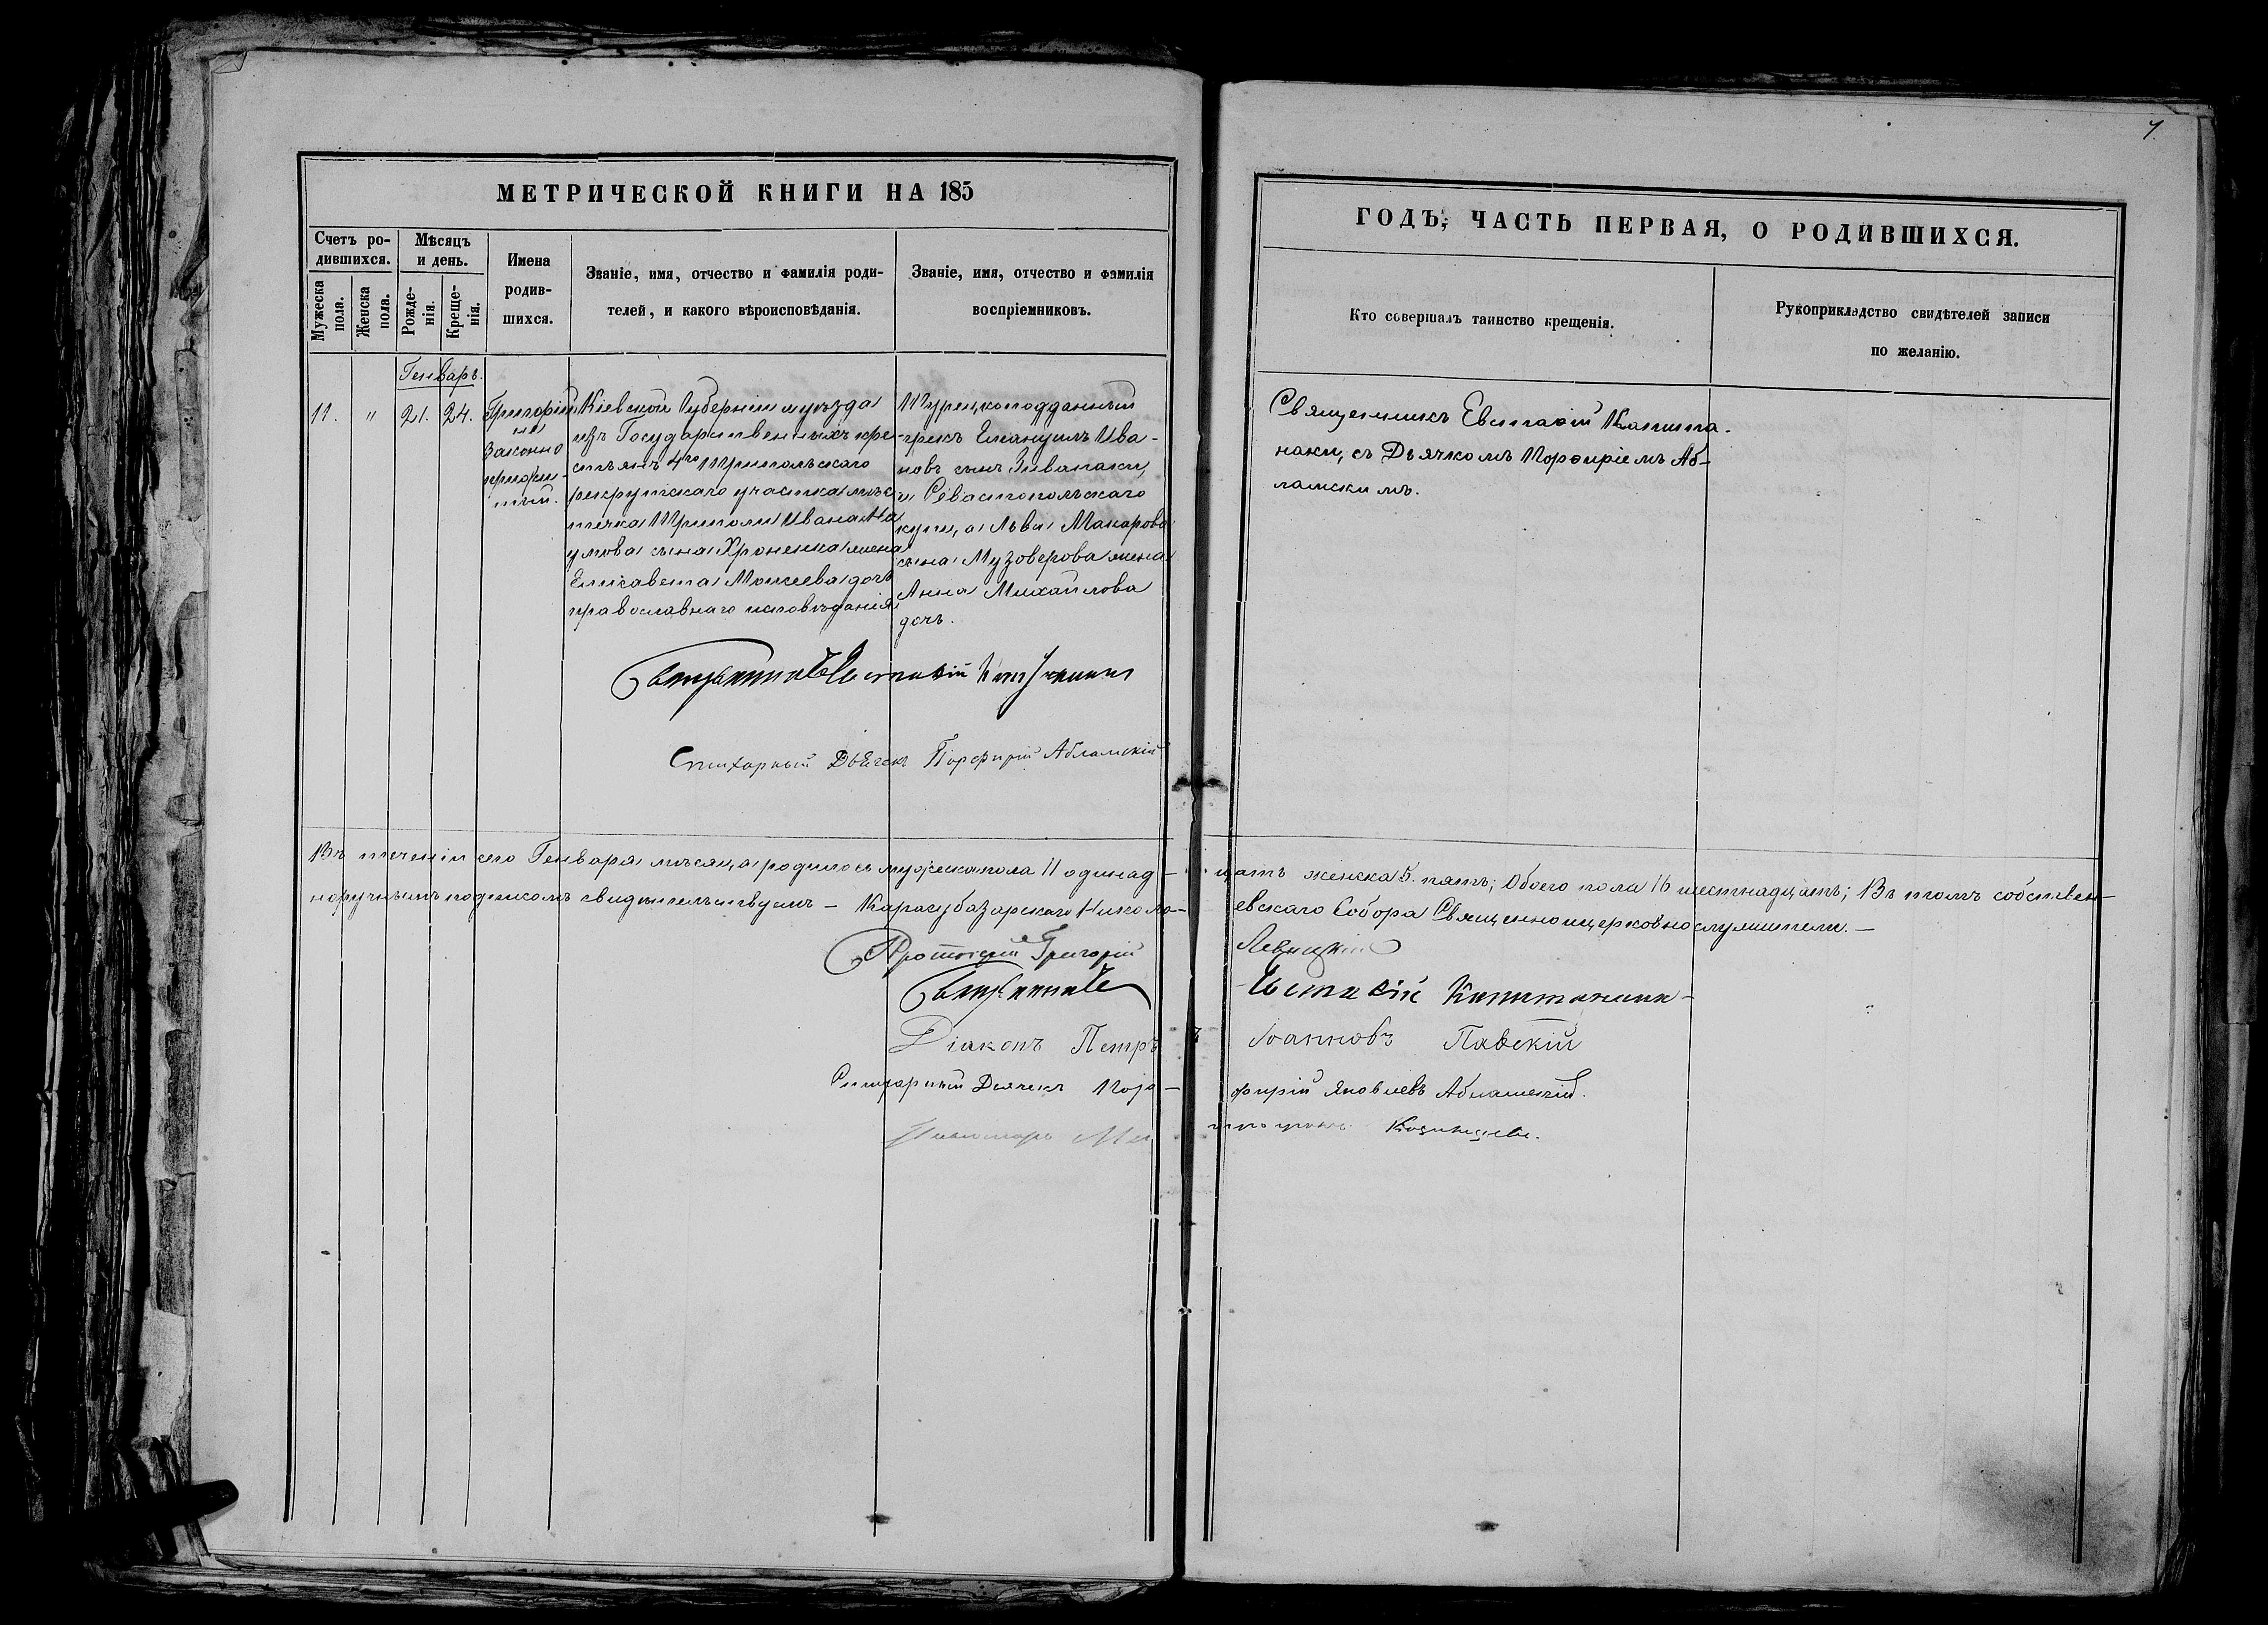 7.
МЕТРИЧЕСКОЙ КНИГИ НА 185
ГОДЪ, ЧАСТЬ ПЕРВАЯ, О РОДИВШИХСЯ.
Счетъ ро-
дившихся.
Мужеска
пола.
Женска
пола.
Мѣсяцъ
и день.
Рожде-
нія.
Креще-
нія.
Имена
родив-
шихся.
Званіе, имя, отчество и фамилія роди-
телей, и какого вѣроисповѣданія.
Званіе, имя, отчество и фамилія
воспріемниковъ.
Кто совершалъ таинство крещенія.
Рукоприкладство свидѣтелей записи
по желанію.
Генваръ.
11. " 21. 24.
Григорій
не
законно
прижи-
тый.
Кіевской Губерніи и уѣзда
изъ Государственныхъ кре-
стьянъ 4го Трипольскаго
рекрутскаго участка мѣс
течка Триполи Ивана На
умова сына Хроненка жена
Елисавета Моисеева дочь
православнаго исповѣданія
Турецкоподданный
грекъ Емануилъ Ива-
новъ сынъ
и Севастопольскаго
купца Льва Макарова
сына Музоверова жена
Анна Михайлова
дочь.
Священникъ Евстафій Капита-
наки, съ Дьячкомъ Порфиріемъ Аб-
ламскимъ.
Священникъ Евстафій Капитанаки
Стихарный Дьячекъ Порфирій Абламскій
Въ теченіи сего Генваря мѣсяца родилось мужеска пола 11 одинад-цать женска 5. пять; Обоего пола 16 шестнадцать; Въ томъ собствен-
норучнымъ подписомъ свидѣтельствуемъ – Карасубазарскаго Николаевскаго Собора Священноицерковнослужители. –
Протоіерей Григорій Левицкій
Священникъ Евстафій Капитанаки
Діаконъ Петръ Іоанновъ Павскій
Стихарный Дьячекъ Порфирій Яковлевъ Абламскій.
Пономарь